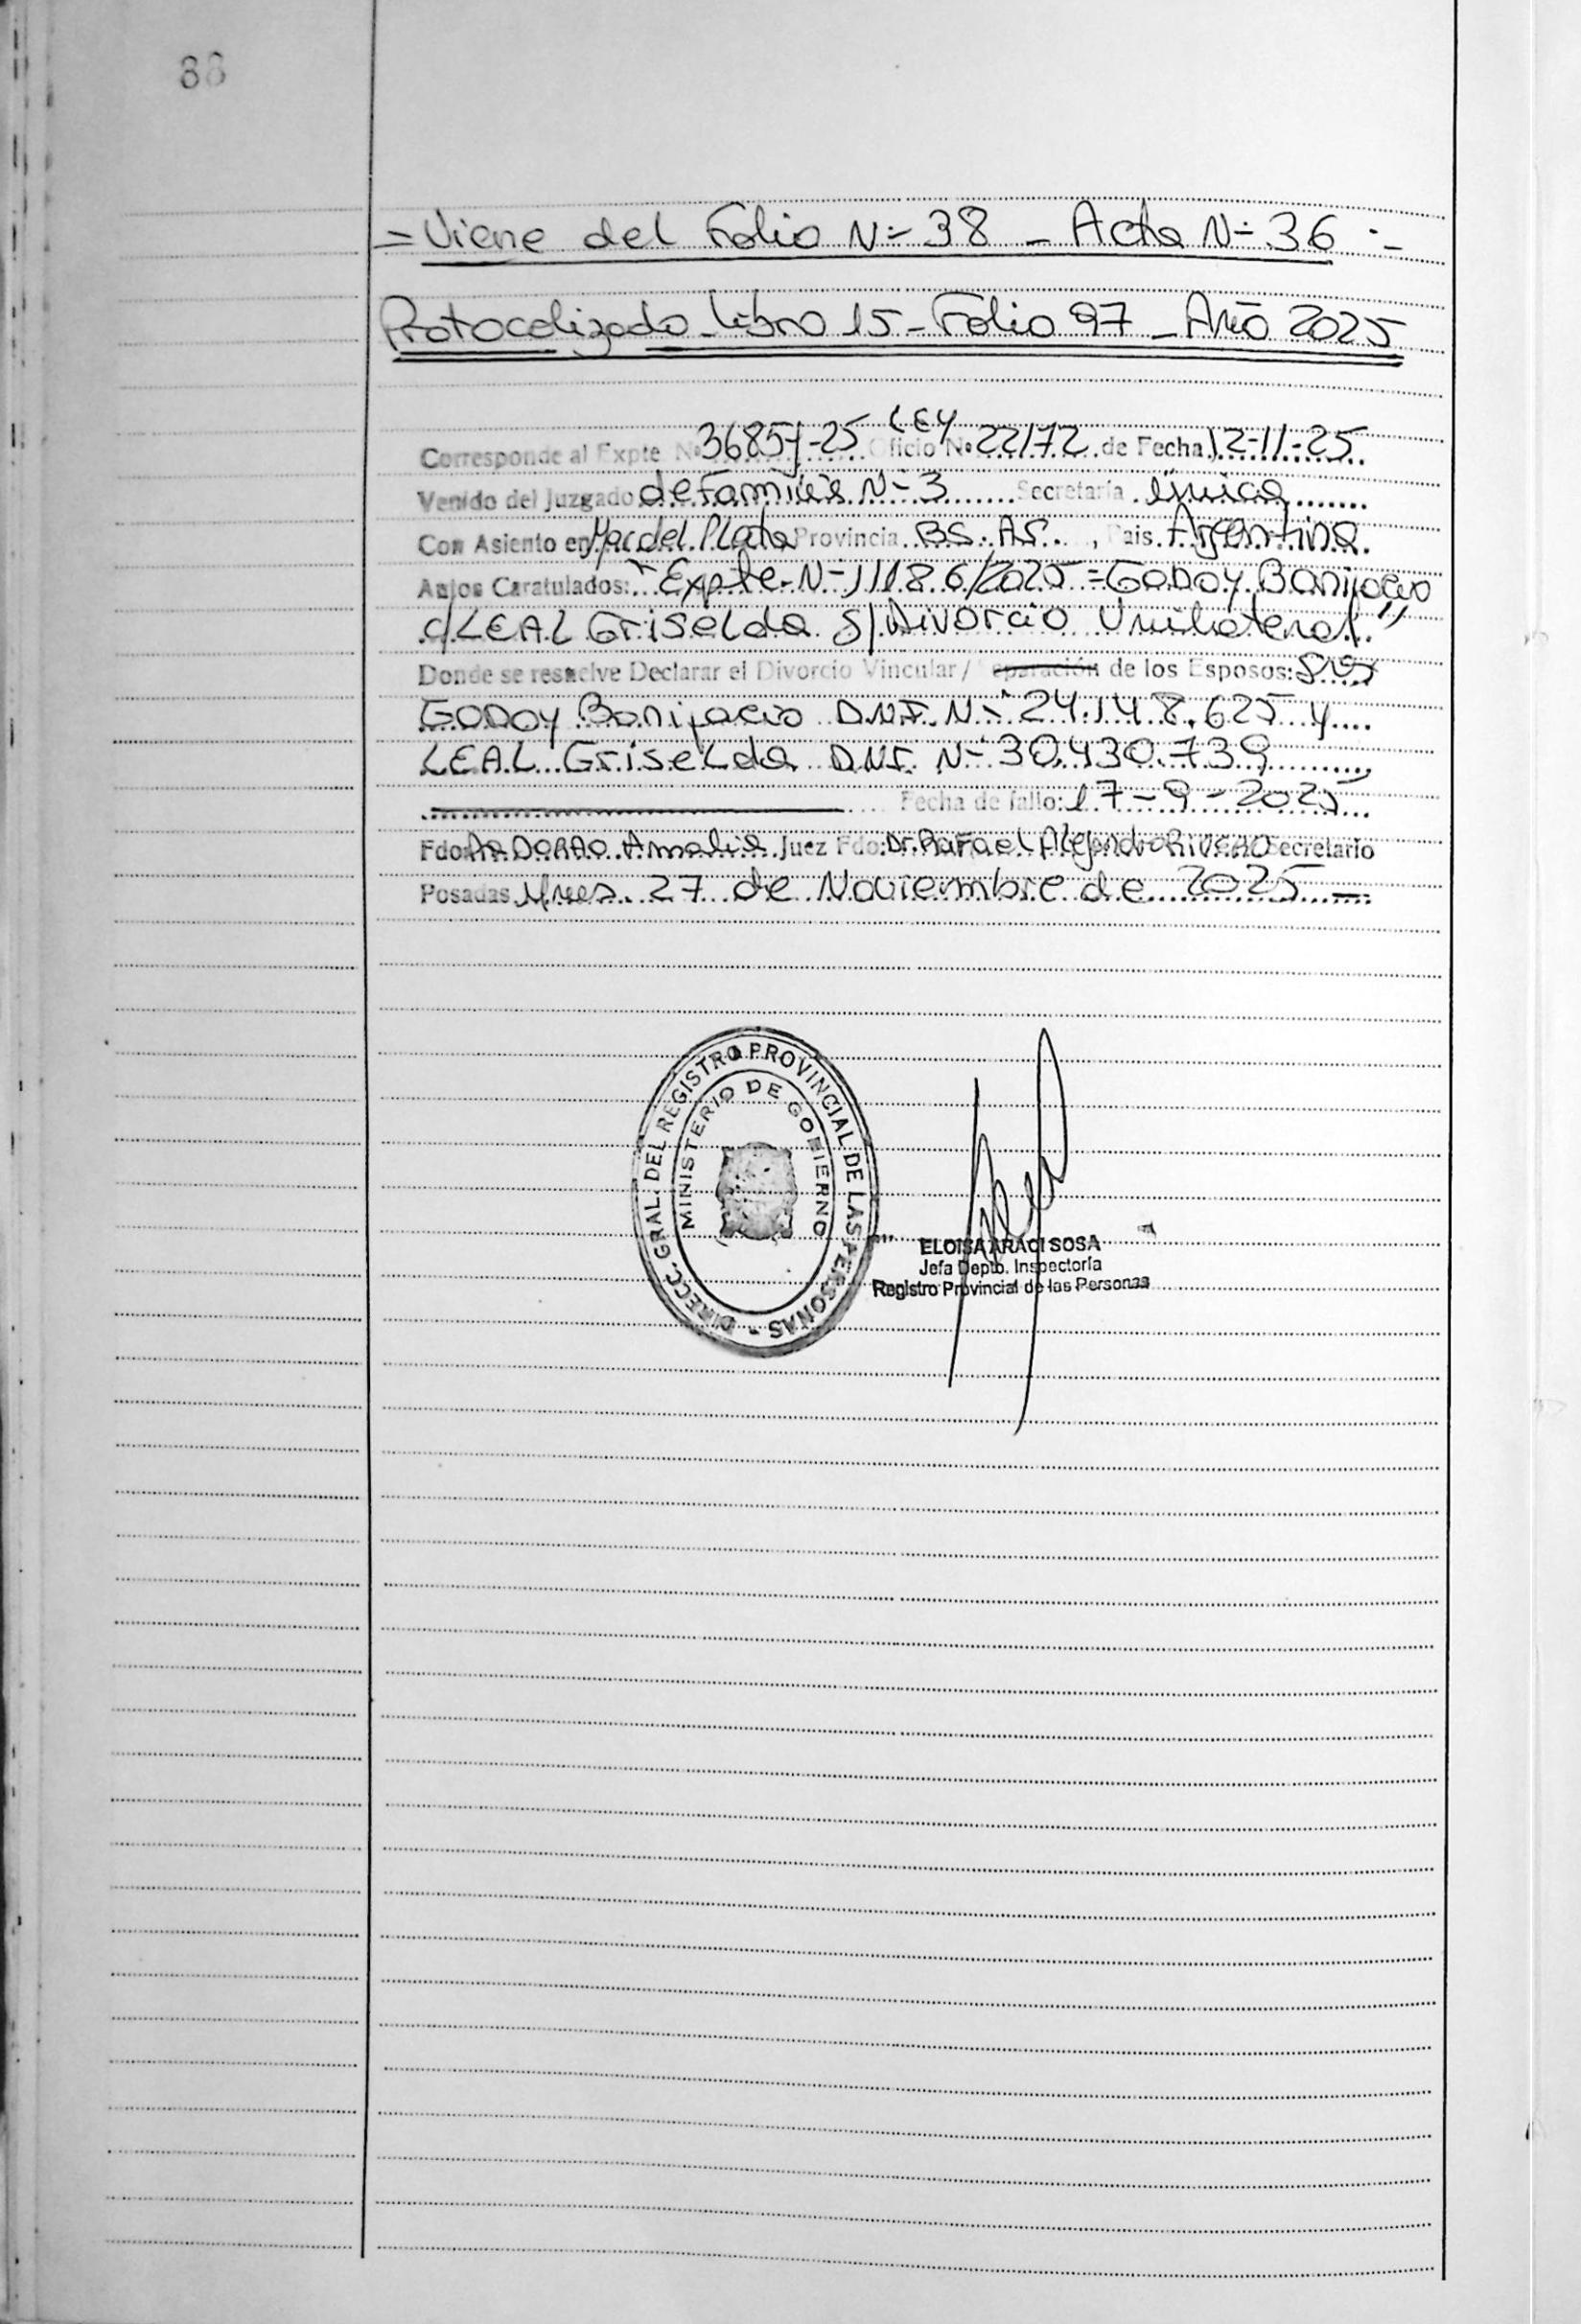 88
= Viene del Folio N- 38 - Acta N- 36 -
Protocolizado - Libro 15 - Folio 97 - Año 2025
LEY
Corresponde al Expte N° 3685 -25 Oficio N° 22172 de Fecha 12-11-25
Venido del Juzgado de Familia N- 3 Secretaría Única
Con Asiento en Mar del Plata Provincia BS. AS. , Pais. Argentina.
Autos Caratulados: "Expte- N- 11186/2025 = GODOY Bonifacio
c/ LEAL Griselda S/ Divorcio Unilateral."
Donde se resuelve Declarar el Divorcio Vincular / Separación de los Esposos:
GODOY Bonifacio D.N.I. N- 24.148.625 y
LEAL Griselda DNI. N- 30.430.739
Fecha de fallo: 17-9-2025
Fdo: Amalia Juez Fdo: Dr. Rafael Alejandro Secretario
Posadas, Mnes. 27 de Noviembre de 2025 -
DIRECC. GRAL. DEL REGISTRO PROVINCIAL DE LAS PERSONAS -
MINISTERIO DE GOBIERNO
ELOISA ARACI SOSA
Jefa Depto. Inspectoría
Registro Provincial de las Personas